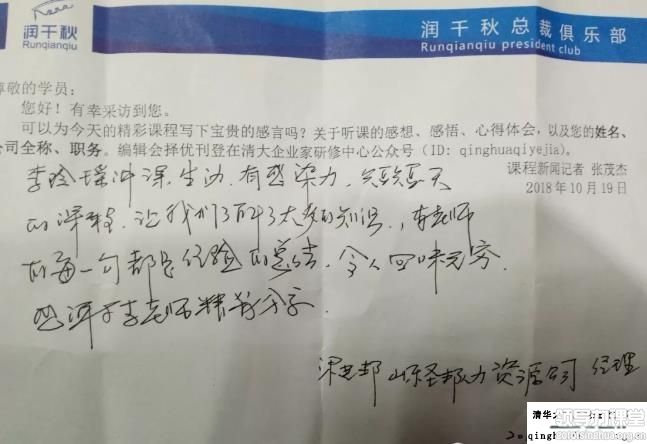 润千秋
Runqianqiu
润千秋总裁俱乐部
Runqianqiu president club
尊敬的学员：
您好！有幸采访到您。
可以为今天的精彩课程写下宝贵的感言吗？关于听课的感想、感悟、心得体会，以及您的姓名、
公司全称、职务。编辑会择优刊登在清大企业家研修中心公众号（ID: qinghuaqiyejia）。
课程新闻记者 张茂杰
2018年10月19日
李玲瑶讲课生动、有感染力，天
的课程，让我们了解了太多的知识，李老师
的每一句都是经验的总结，令人回味无穷。
感谢李老师精彩分享。
邦 山东圣邦人力资源公司 经理
清华大
qingh